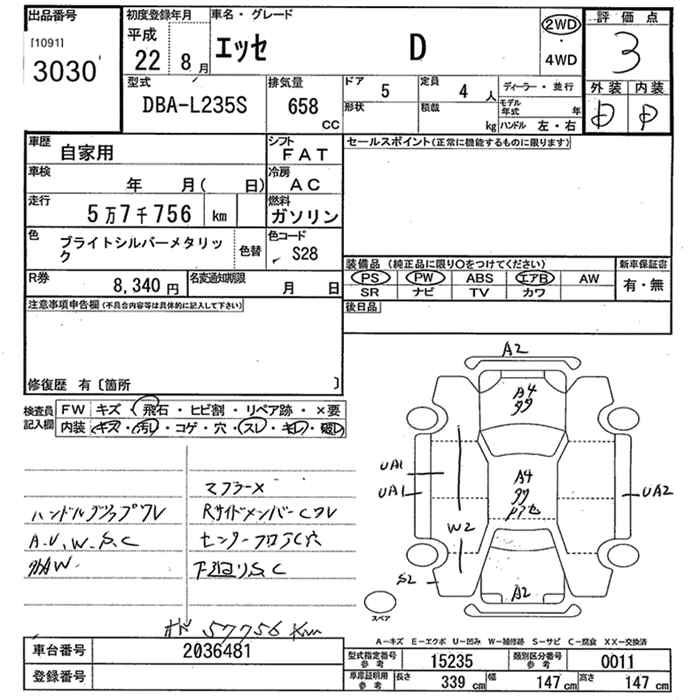 出品番号
[1091]
3030
初度登録年月
平成
22 8月
車名・グレード
エッセ D
2WD
・
4WD
評価点
3
外装 内装
D D
型式
DBA-L235S
排気量
658
cc
ドア 5
形状
定員 4 人
積載 kg
ディーラー・並行
モデル年式 年
ハンドル 左・右
車歴
自家用
シフト
FAT
車検
年 月( 日)
冷房
AC
走行
5万7千756 km
燃料
ガソリン
色
ブライトシルバーメタリック
色替
色コード
S28
R券
8,340 円
名変通知期限
月 日
セールスポイント(正常に機能するものに限ります)
装備品(純正品に限り○をつけてください)
新車保証書
PS PW ABS エアB AW
有・無
SR ナビ TV カワ
後日品
注意事項申告欄(不具合内容等は具体的に記入して下さい)
修復歴 有〔箇所 〕
検査員
記入欄
FW キズ・飛石・ヒビ割・リペア跡・×要
内装 キズ・汚レ・コゲ・穴・スレ・キレ・破レ
マフラーメ
ハンドル
Rサイドメンバー
A.U.W.S.C
センターフロア
S.C
57756 Km
A2
A4
A4
UA1
UA1
W2
UA2
S2
A2
スペア
A-キズ E-エクボ U-凹み W-補修跡 S-サビ C-腐食 XX-交換済
車台番号
2036481
登録番号
型式指定番号
参考
15235
類別区分番号
参考
0011
車庫証明用
参考
長さ
339 cm
幅
147 cm
高さ
147 cm